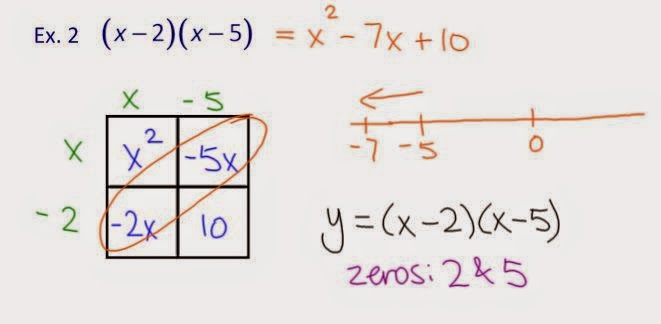 Ex. 2 (x-2)(x-5) = x² - 7x + 10
x -5
x x² -5x
-2 -2x 10
-7 -5 0
y = (x-2)(x-5)
zeros: 2 & 5